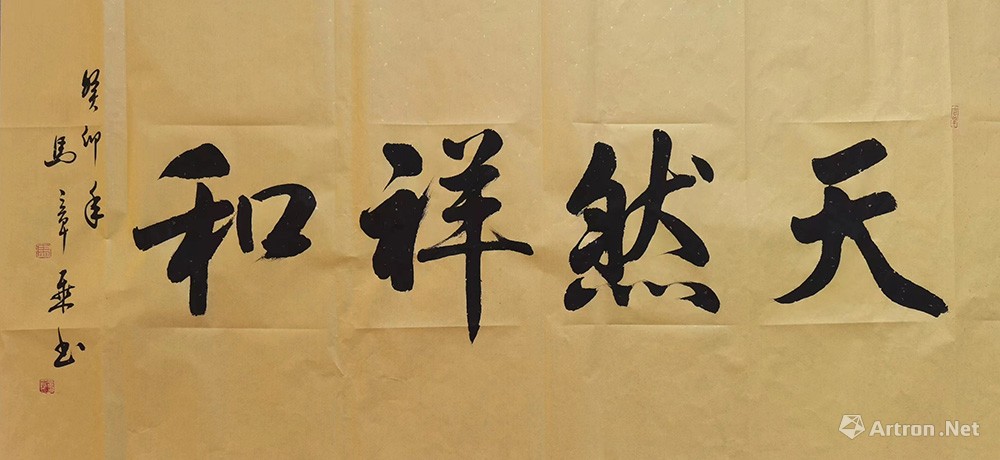 天然祥和
癸卯年
馬三章乗书
Artron.Net